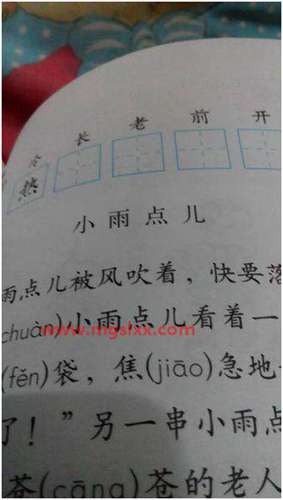 冷 长 老 前 开
热
小雨点儿
雨点儿被风吹着，快要落
chuàn)小雨点儿看着一
www.mgslxx.com
(fěn)袋，焦(jiāo)急地
了！”另一串小雨点
苍(cāng)苍的老人